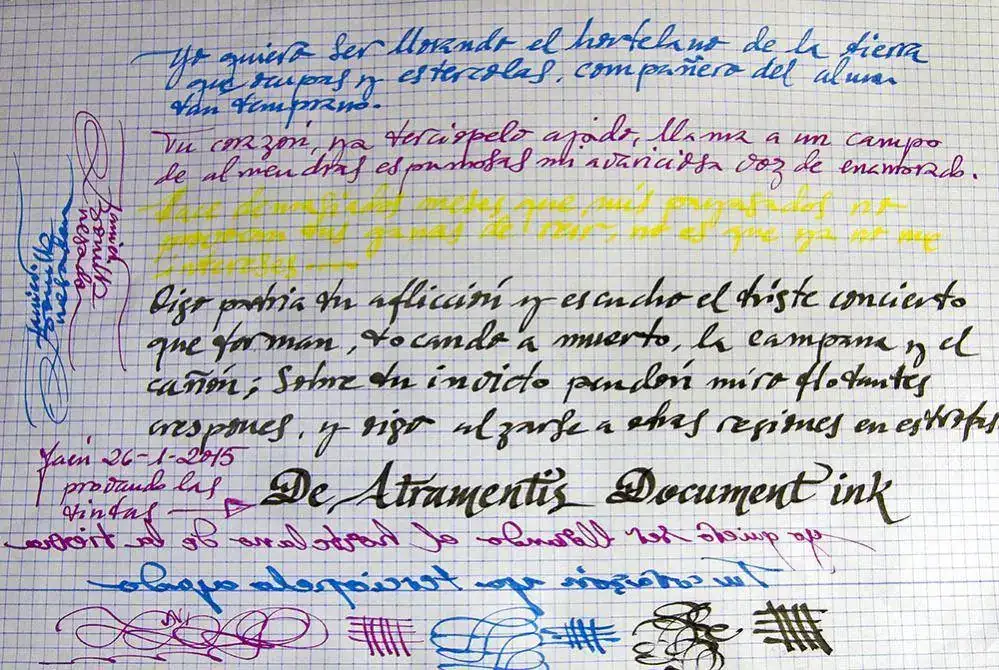 Yo quiero ser llorando el hortelano de la tierra
que ocupas y estercolas, compañero del alma
tan temprano.
Tu corazón, ya terciopelo ajado, llama a un campo
de almendras espumosas mi avariciosa voz de enamorado.
Hace demasiados meses que mis payasadas no
provocan tus ganas de reir, no es que ya no me
intereses
Oigo patria tu aflicción y escucho el triste concierto
que forman, tocando a muerto, la campana y el
cañón; Sobre tu invicto pendón miro flotantes
crespones, y oigo alzarse a otras regiones en estrofas
Jaén 26-1-2015
provando las
tintas
De Atramentis Document ink
yo quiero ser llorando el hortelano de la tierra
Tu corazón ya terciopelo ajado